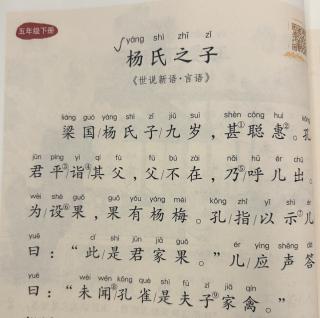 五年级下册
yáng shì zhī zǐ
杨氏之子
《世说新语·言语》
liáng guó yáng shì zǐ jiǔ suì shèn cōng huì kǒng
梁国/杨氏子/九岁,甚①聪惠②。孔
jūn píng yì qí fù fù bú zài nǎi hū ér chū
君平③/诣④其父,父不在,乃⑤呼儿出。
wèi shè guǒ guǒ yǒu yáng méi kǒng zhǐ yǐ shì ér
为/设⑥果,果有杨梅。孔/指/以示⑦儿
yuē cǐ shì jūn jiā guǒ ér yìng shēng dá
曰:“此/是君家果。”儿/应声答
yuē wèi wén kǒng què shì fū zǐ jiā qín
曰:“未闻⑧/孔雀/是夫子⑨家禽。”